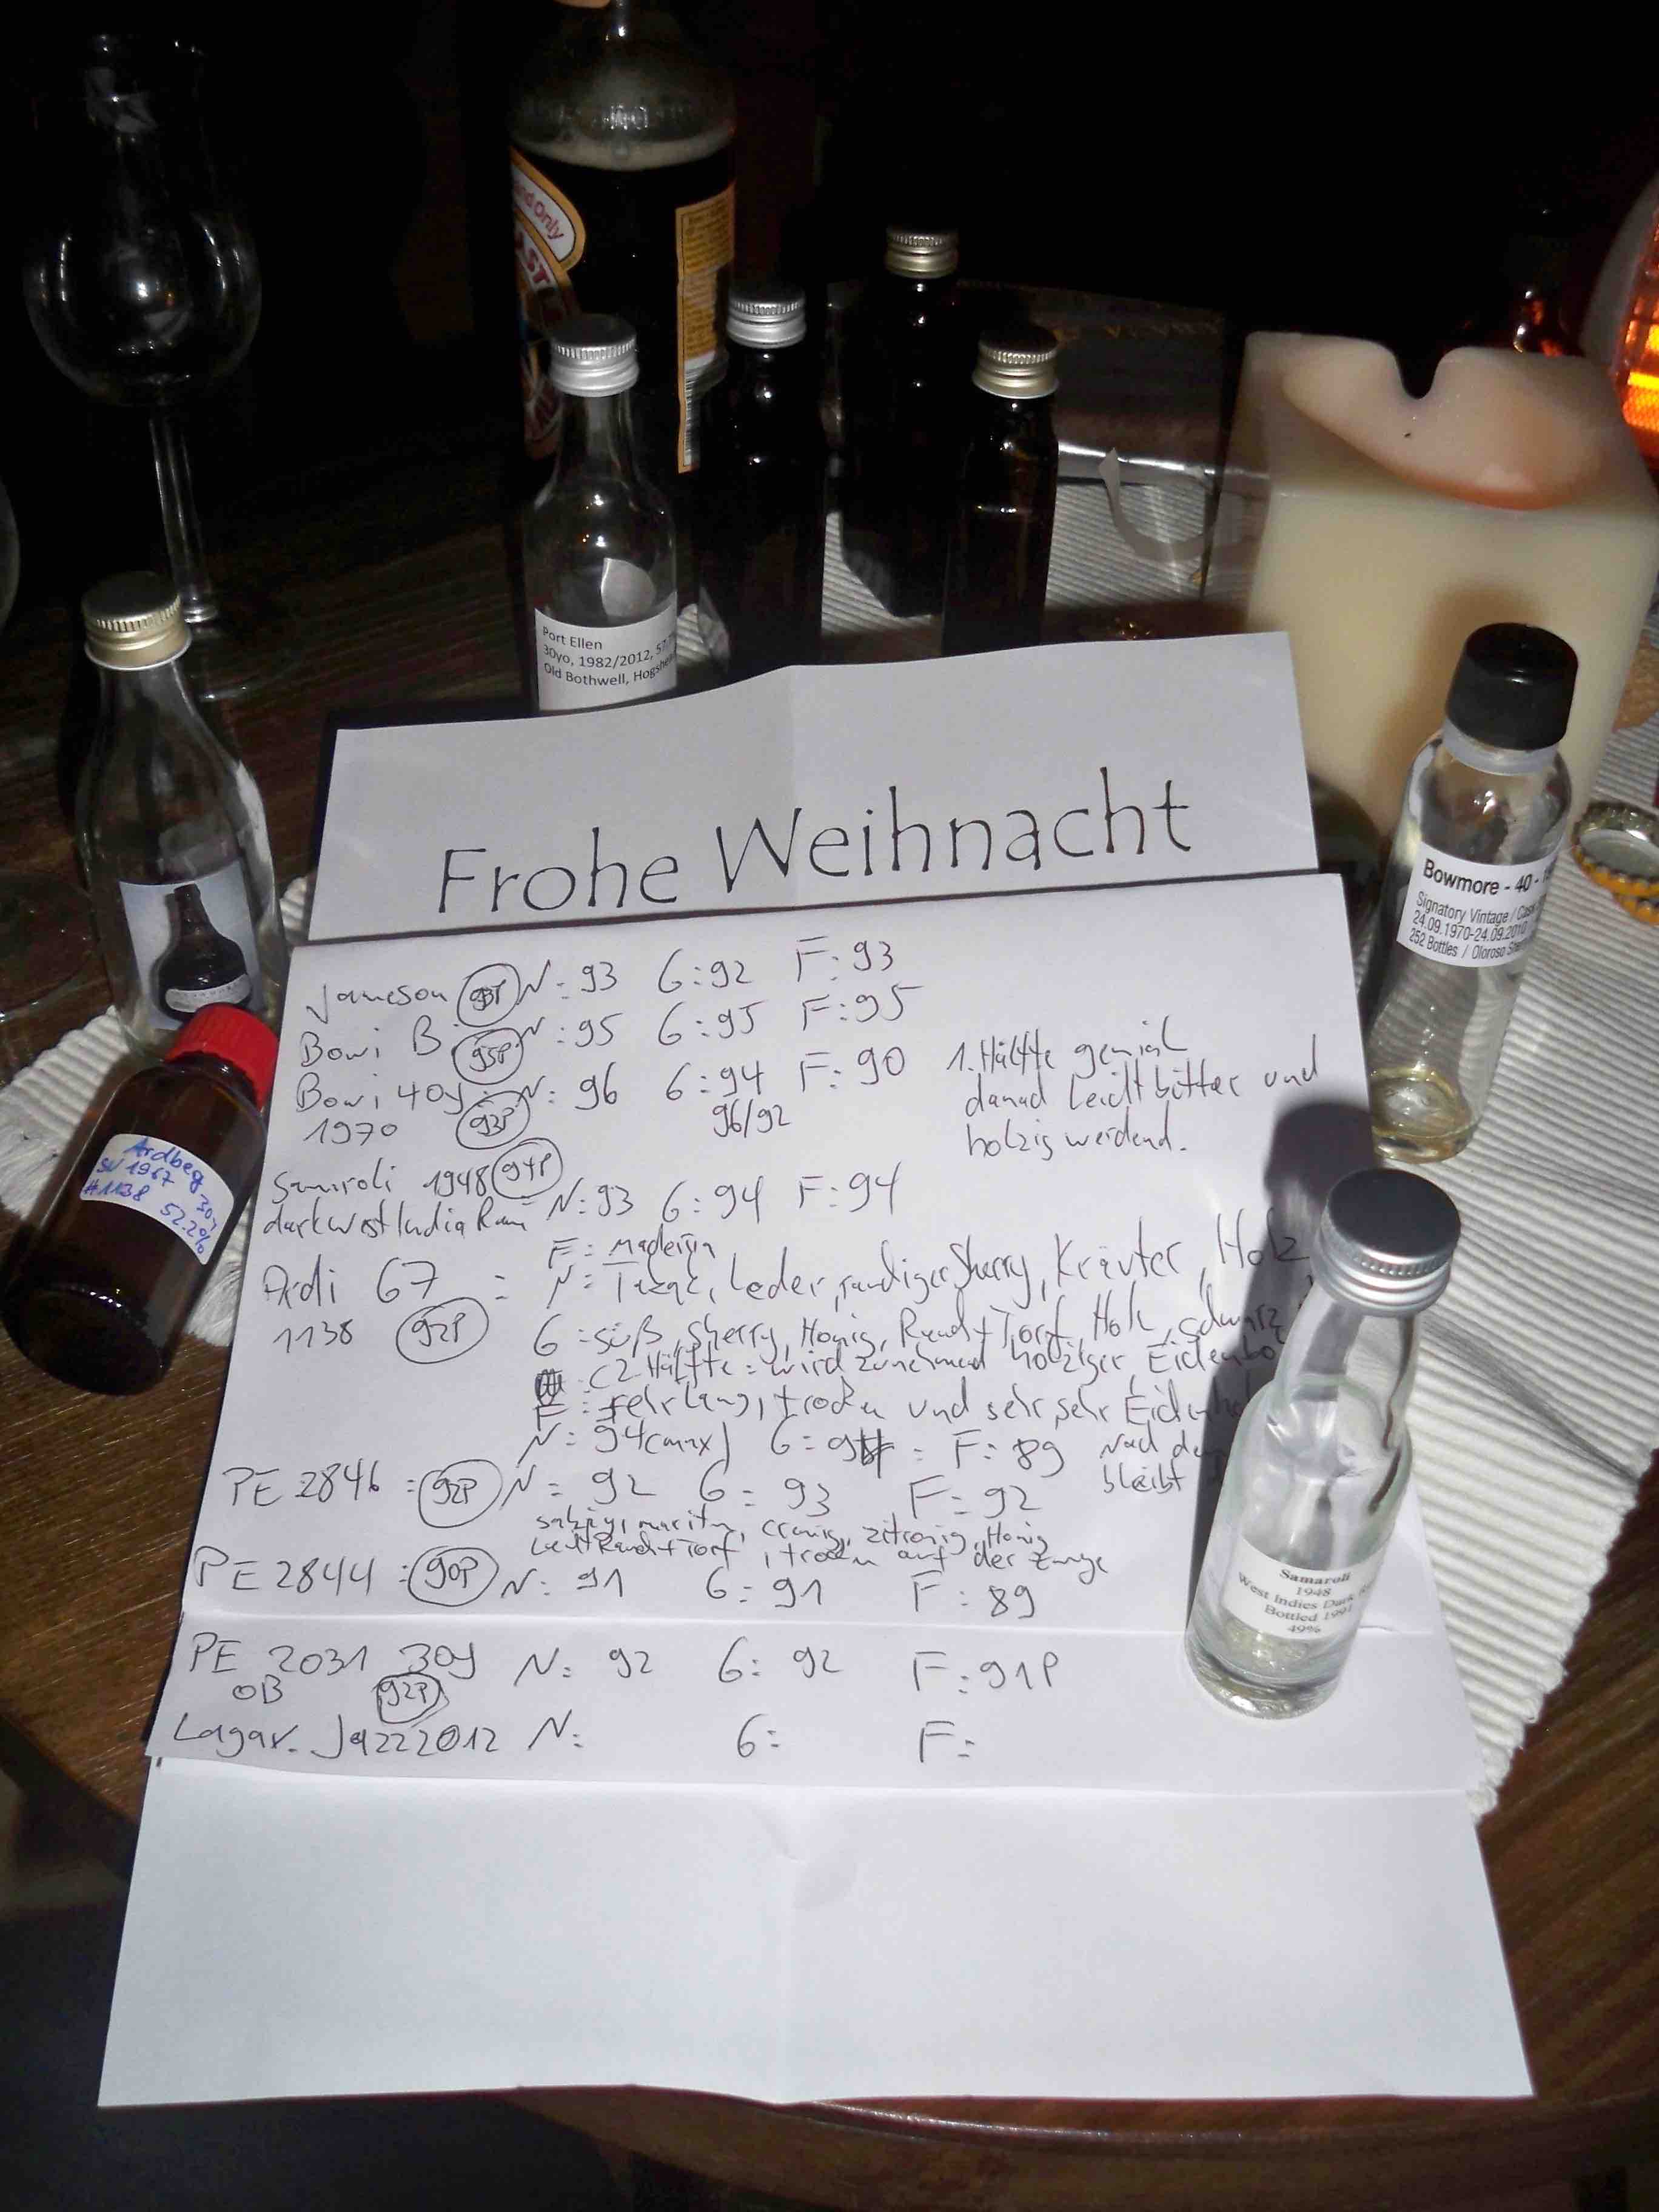 and Only
Port Ellen
30yo, 1982/2012, 57.
Old Bothwell, Hogshea
Frohe Weihnacht
Bowmore - 40 -
Signatory Vintage / Cask
24.09.1970-24.09.2010
252 Bottles / Oloroso Sherry
Ardbeg
SV 1967 30y
#1138 52.2%
Jameson 93P N: 93 G: 92 F: 93
Bowi B. 95P N: 95 G: 95 F: 95
Bowi 40y: N: 96 G: 94 F: 90
1970 93P 96/92
1. Hälfte genial
danach leicht bitter und
holzig werdend.
Samroli 1948 94P
dark West India Rum N: 93 G: 94 F: 94
F: Madeira
Ardi 67 : N: Tabac, Leder, Sherry, Kräuter, Holz
1138 92P G: süß, Sherry, Honig, Rauch+Torf, Holz, schwarz
2 Hälfte: wird zunehmend holziger,
F: sehr lang, trocken und sehr, sehr
N: 94 (max) G: F: 89 Nach
bleibt
PE 2846 : 92P N: 92 G: 93 F: 92
salzig, maritim, cremig, zitronig, Honig
leicht Rauch+Torf, trocken auf der Zunge
PE 2844 : 90P N: 91 G: 91 F: 89
PE 2031 30y N: 92 G: 92 F: 91P
OB 92P
Lagav. Jazz 2012 N: G: F:
Samaroli
1948
West Indies Dark
Bottled 1991
49%